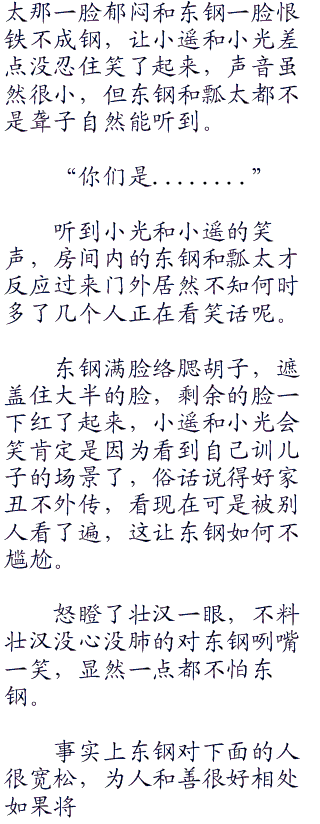 太那一脸郁闷和东钢一脸恨
铁不成钢，让小遥和小光差
点没忍住笑了起来，声音虽
然很小，但东钢和瓢太都不
是聋子自然能听到。
“你们是........”
听到小光和小遥的笑
声，房间内的东钢和瓢太才
反应过来门外居然不知何时
多了几个人正在看笑话呢。
东钢满脸络腮胡子，遮
盖住大半的脸，剩余的脸一
下红了起来，小遥和小光会
笑肯定是因为看到自己训儿
子的场景了，俗话说得好家
丑不外传，看现在可是被别
人看了遍，这让东钢如何不
尴尬。
怒瞪了壮汉一眼，不料
壮汉没心没肺的对东钢咧嘴
一笑，显然一点都不怕东
钢。
事实上东钢对下面的人
很宽松，为人和善很好相处
如果将